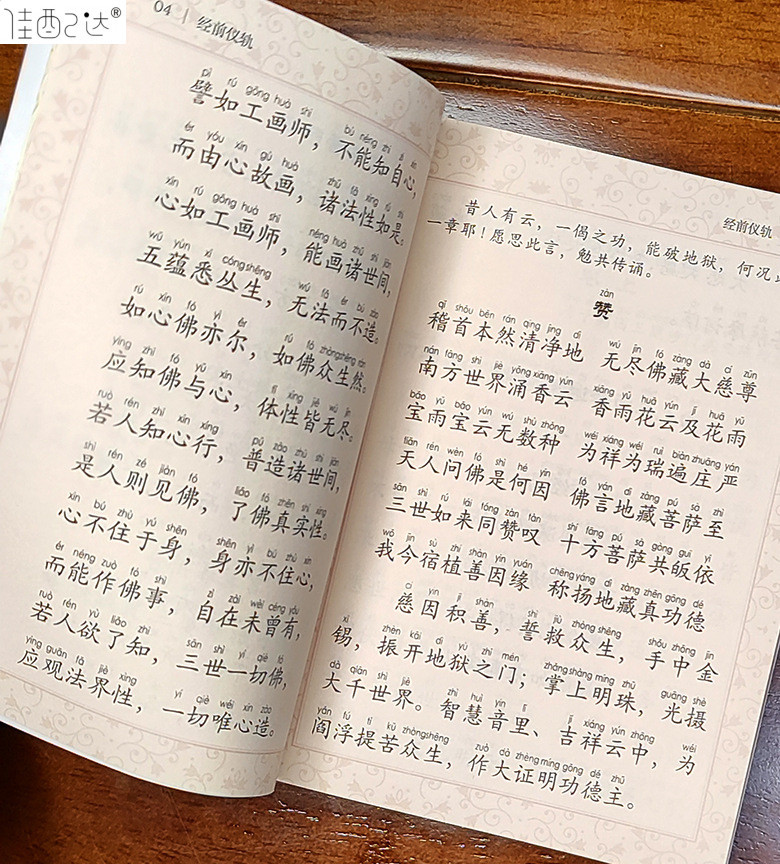 佳配亿达®
04 | 经前仪轨
pì rú gōng huà shī bù néng zhī
譬如工画师，不能知自心，
ér yóu xīn gù huà zhū fǎ xìng rú shì
而由心故画，诸法性如是。
xīn rú gōng huà shī néng huà zhū shì jiān
心如工画师，能画诸世间，
wǔ yùn xī cóng shēng wú fǎ ér bú zào
五蕴悉丛生，无法而不造。
rú xīn fó yì ěr rú fó zhòng shēng rán
如心佛亦尔，如佛众生然。
yīng zhī fó yǔ xīn tǐ xìng jiē wú jìn
应知佛与心，体性皆无尽。
ruò rén zhī xīn xíng pǔ zào zhū shì jiān
若人知心行，普造诸世间，
shì rén zé jiàn fó liǎo fó zhēn shí xìng
是人则见佛，了佛真实性。
xīn bú zhù yú shēn shēn yì bú zhù xīn
心不住于身，身亦不住心，
ér néng zuò fó shì zì zài wèi céng yǒu
而能作佛事，自在未曾有，
ruò rén yù liǎo zhī sān shì yí qiè fó
若人欲了知，三世一切佛，
yīng guān fǎ jiè xìng yí qiè wéi xīn zào
应观法界性，一切唯心造。
经前仪轨
昔人有云，一偈之功，能破地狱，何况
一章耶！愿思此言，勉共传诵。
zàn
赞
qǐ shǒu běn rán qīng jìng dì wú jìn fó zàng dà cí zūn
稽首本然清净地 无尽佛藏大慈尊
nán fāng shì jiè yǒng xiāng yún xiāng yǔ huā yún jí huā yǔ
南方世界涌香云 香雨花云及花雨
bǎo yǔ bǎo yún wú shù zhǒng wéi xiáng wéi ruì biàn zhuāng yán
宝雨宝云无数种 为祥为瑞遍庄严
tiān rén wèn fó shì hé yīn fó yán dì zàng pú sà zhì
天人问佛是何因 佛言地藏菩萨至
sān shì rú lái tóng zàn tàn shí fāng pú sà gòng guī yī
三世如来同赞叹 十方菩萨共皈依
wǒ jīn sù zhí shàn yīn yuán chēng yáng dì zàng zhēn gōng dé
我今宿植善因缘 称扬地藏真功德
cí yīn jī shàn shì jiù zhòng shēng shǒu zhōng jīn
慈因积善，誓救众生，手中金
xī zhèn kāi dì yù zhī mén zhǎng shàng míng zhū guāng shè
锡，振开地狱之门；掌上明珠，光摄
dà qiān shì jiè zhì huì yīn lǐ jí xiáng yún zhōng wèi
大千世界。智慧音里、吉祥云中，为
yán fú tí kǔ zhòng shēng zuò dà zhèng míng gōng dé zhǔ
阎浮提苦众生，作大证明功德主。